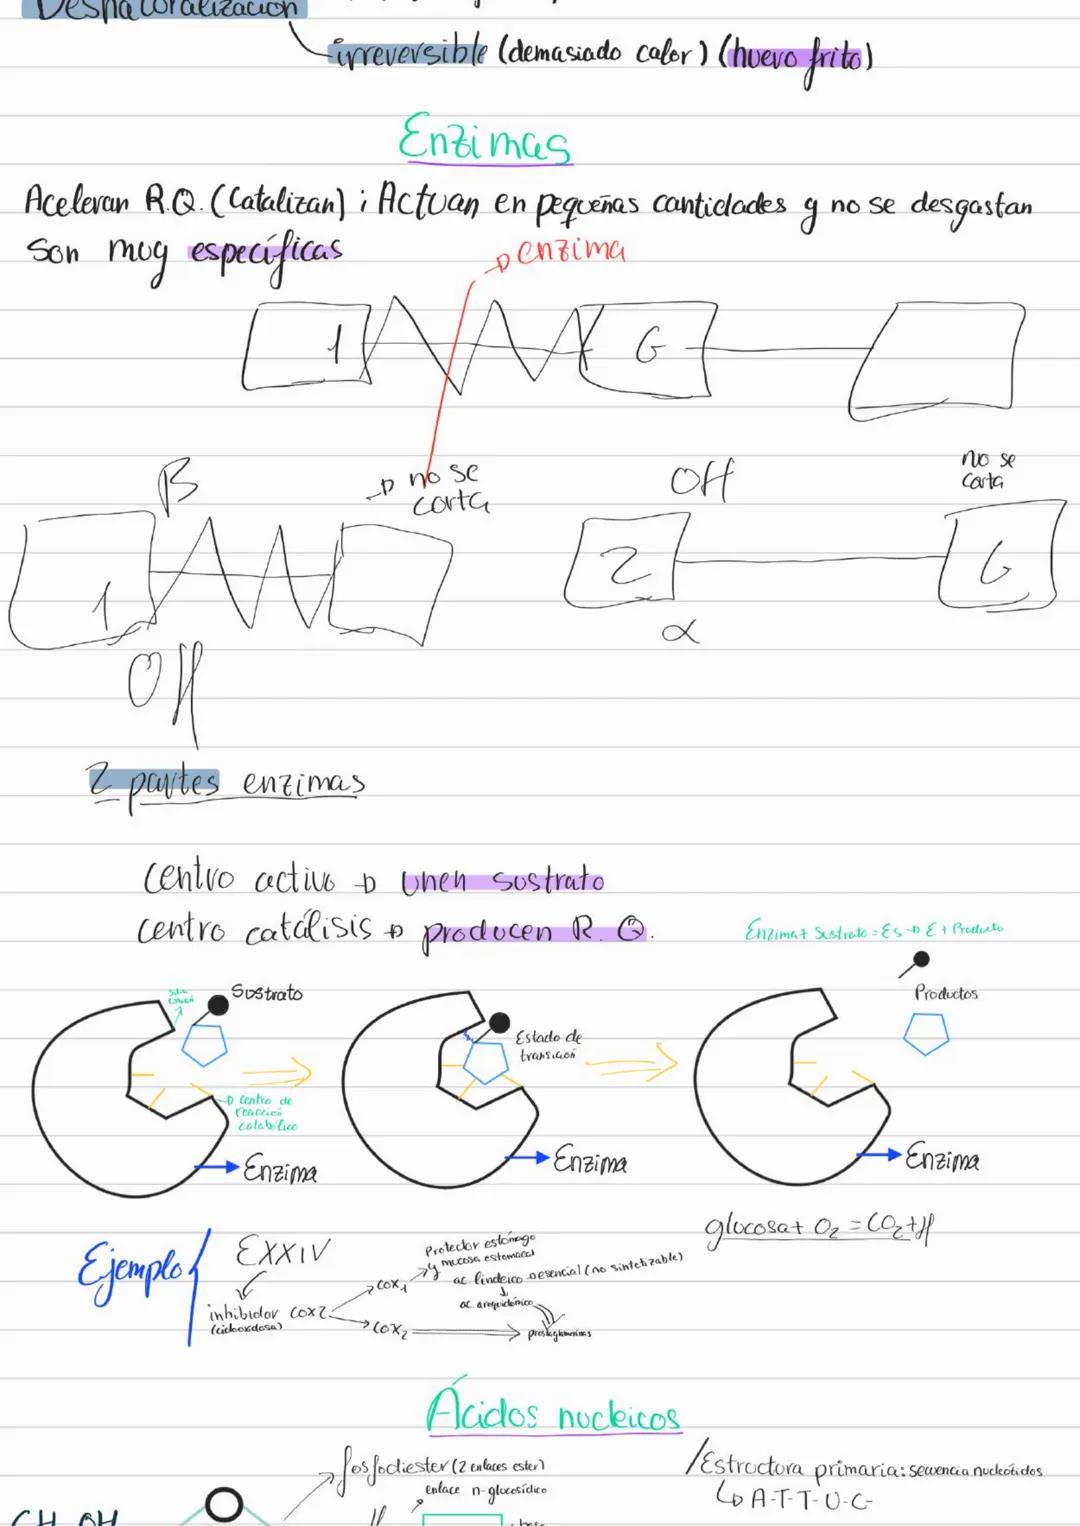 Desnaturalización
irreversible (demasiado calor) (huevo frito)
Enzimas
Aceleran R.Q. (Catalizan) ; Actuan en pequeñas cantidades y no se desgastan
son muy específicas
enzima
1 6
β
no se
corta
Off
no se
corta
1 2 6
α
Off
2 partes enzimas
Centro activo → Unen sustrato
centro catálisis → producen R. Q.
Enzima + Sustrato = ES → E + Producto
Sustrato
Productos
Estado de
transición
Centro de
reacción
catabólico
Enzima
Enzima
Enzima
glucosa + O2 = CO2 + H
Ejemplo
EXXIV
Protector estómago
y mucosa estomacal
COX1
ac. lindeico → esencial (no sintetizable)
ac. araquidónico
inhibidor COX2
COX2
Ácidos nucleicos
fosfodiester (2 enlaces ester)
/Estructura primaria: secuencia nucleótidos
enlace n-glucosídico
↳ A-T-T-U-C-
CH2OH
base